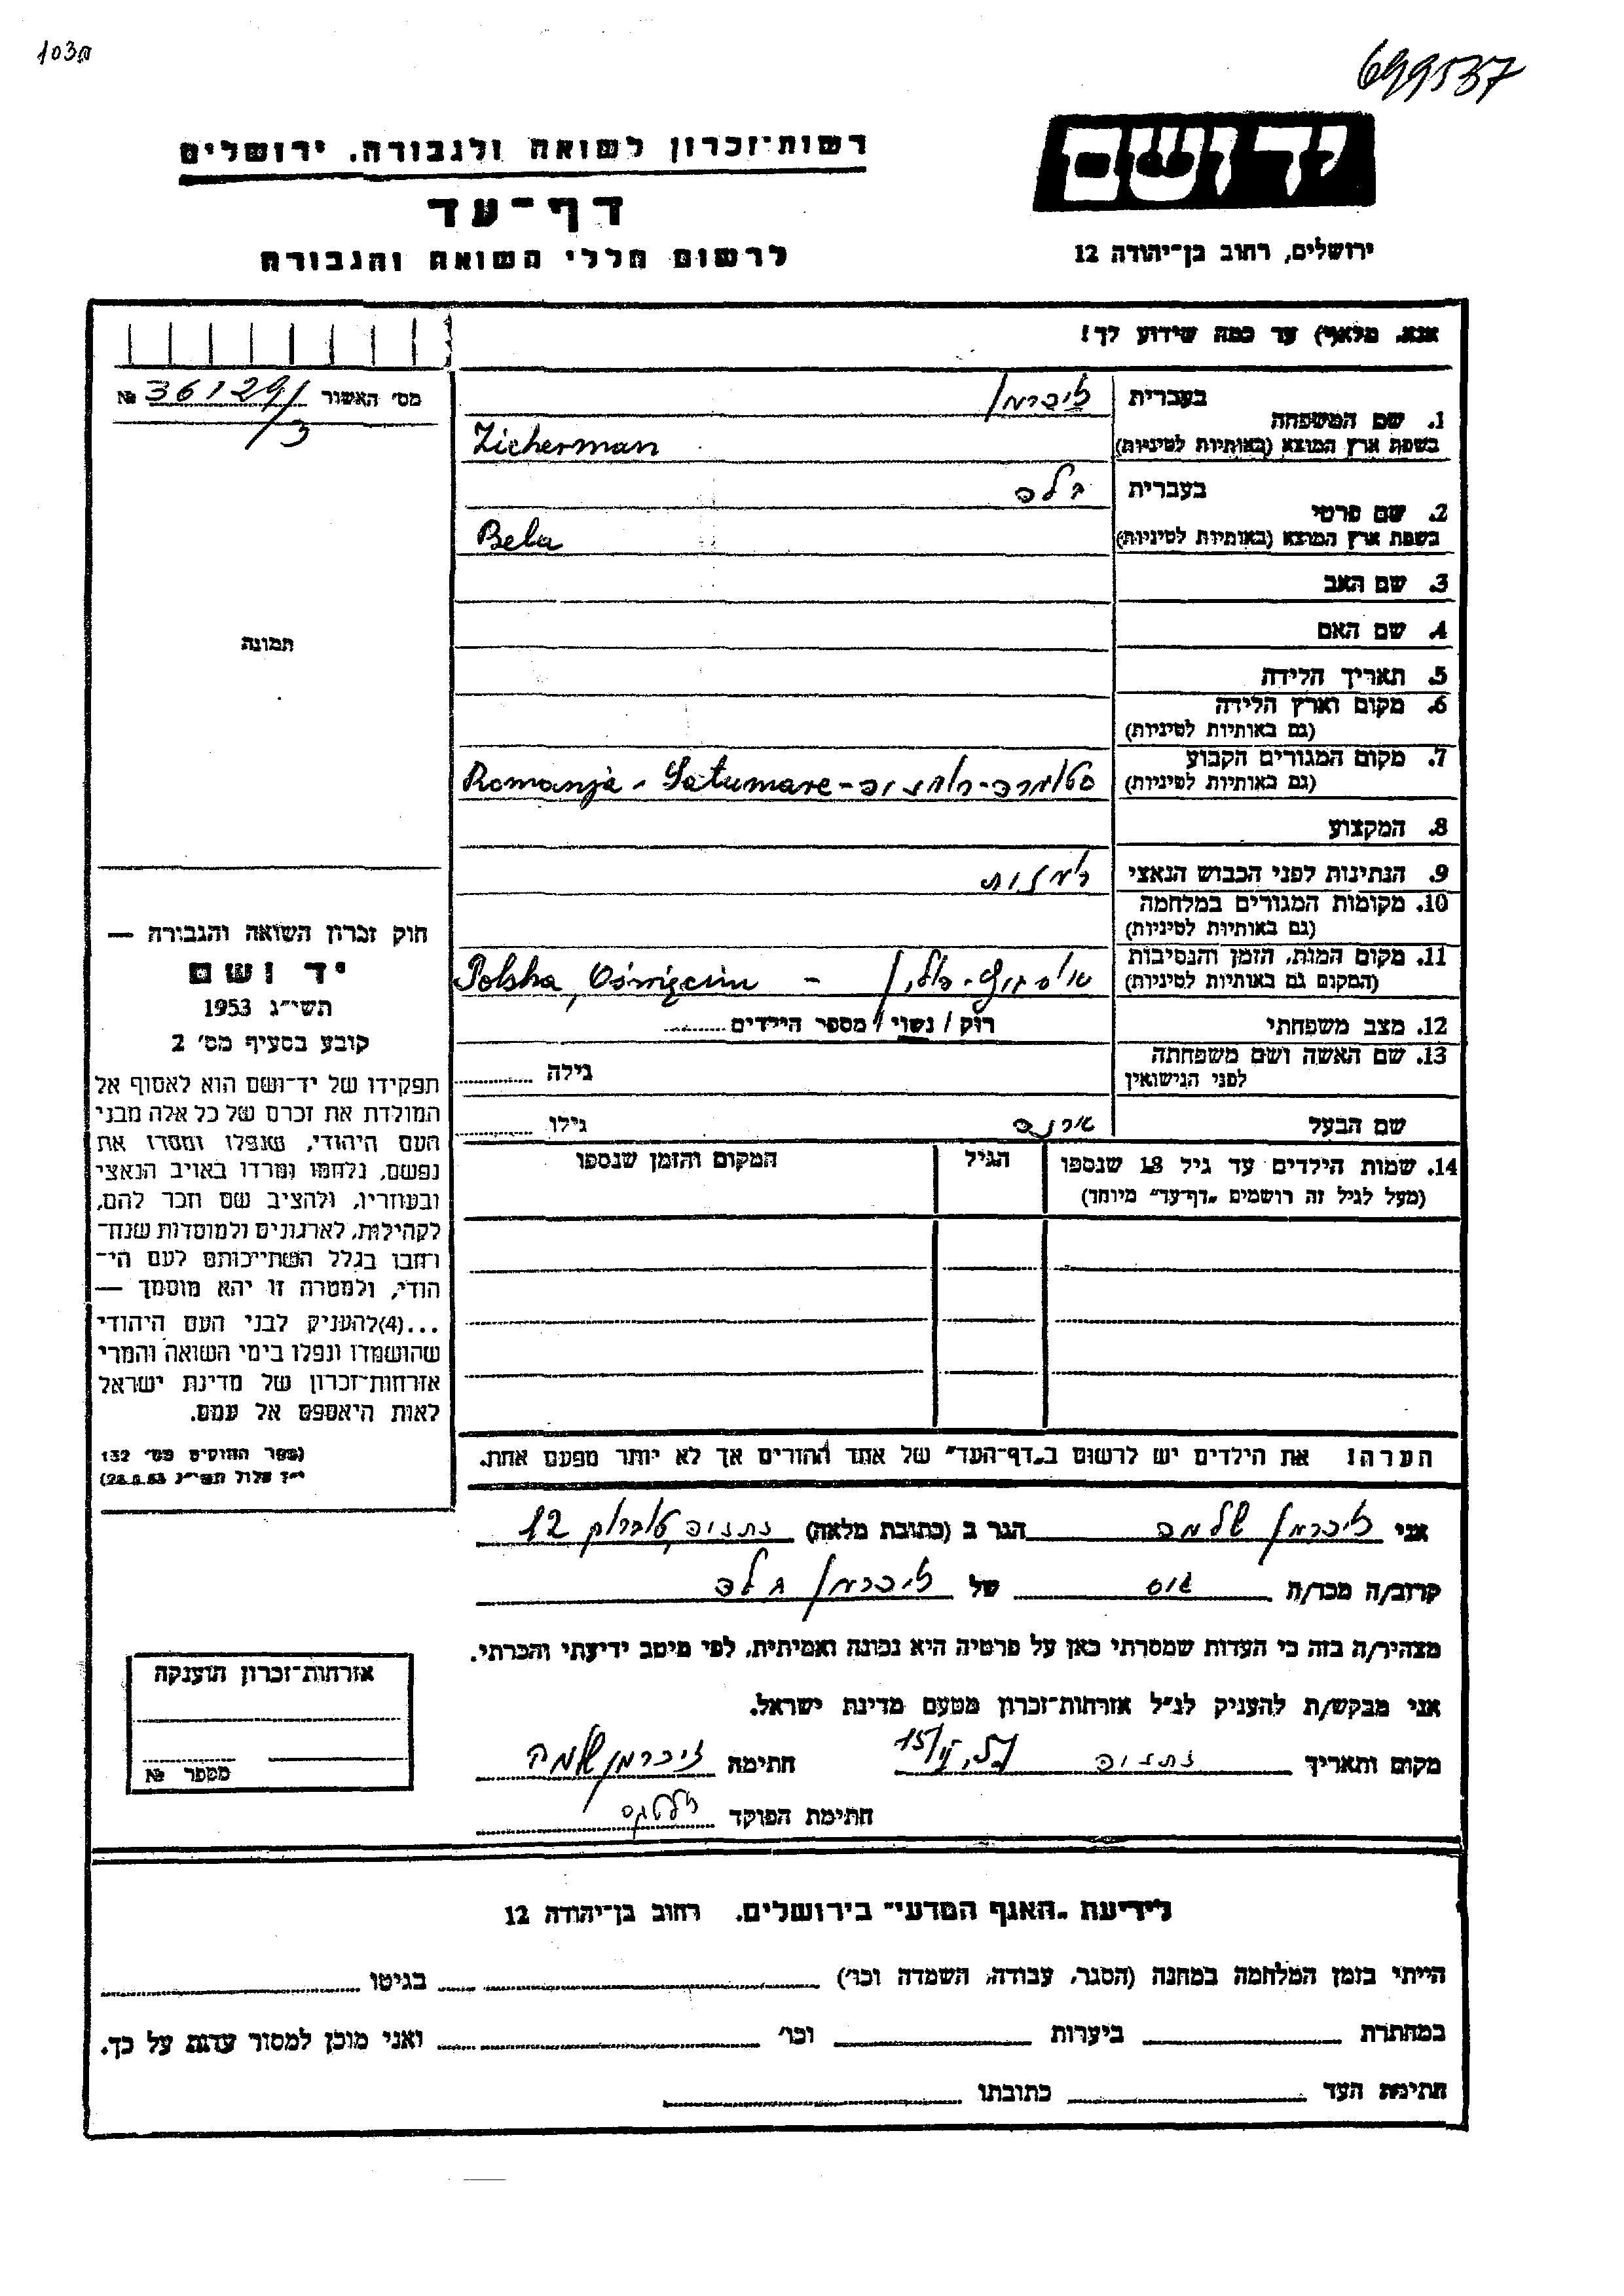 103א
699537
רשות־זכרון לשואה ולגבורה. ירושלים
יד ושם
דף־עד
לרשום חללי השואה והגבורה
ירושלים, רחוב בן־יהודה 12
אנא, מלא(י) עד כמה שידוע לך!
מס' האשור № 36129/3
1. שם המשפחה
בעברית זיכרמן
בשפת ארץ המוצא (באותיות לטיניות) Zicherman
2. שם פרטי
בעברית בלה
בשפת ארץ המוצא (באותיות לטיניות) Bela
3. שם האב
4. שם האם
תמונה
5. תאריך הלידה
6. מקום וארץ הלידה
(גם באותיות לטיניות)
7. מקום המגורים הקבוע
(גם באותיות לטיניות) סטומרה-רומניה - Romanja - Satumare
8. המקצוע
9. הנתינות לפני הכבוש הנאצי רומנית
10. מקומות המגורים במלחמה
(גם באותיות לטיניות)
11. מקום המות, הזמן והנסיבות
(המקום גם באותיות לטיניות) פולין - Polska, Oświęcim
12. מצב משפחתי רוק / נשוי / מספר הילדים
13. שם האשה ושם משפחתה
לפני הנישואין גילה
שם הבעל גילו
14. שמות הילדים עד גיל 18 שנספו
(מעל לגיל זה רושמים „דף־עד" מיוחד)
הגיל
המקום והזמן שנספו
חוק זכרון השואה והגבורה —
יד ושם
תשי"ג 1953
קובע בסעיף מס' 2
תפקידו של יד־ושם הוא לאסוף אל
המולדת את זכרם של כל אלה מבני
העם היהודי, שנפלו ומסרו את
נפשם, נלחמו ומרדו באויב הנאצי
ובעוזריו, ולהציב שם וזכר להם,
לקהילות, לארגונים ולמוסדות שנח־
רחבו בגלל השתייכותם לעם הי־
הודי, ולמטרה זו יהא מוסמך —
...(4)להעניק לבני העם היהודי
שהושמדו ונפלו בימי השואה והמרי
אזרחות־זכרון של מדינת ישראל
לאות היאספם אל עמם.
(ספר החוקים מס' 132
י"ז אלול תשי"ג 28.8.53)
הערה! את הילדים יש לרשום ב„דף־העד" של אחד ההורים אך לא יותר מפעם אחת.
אני זיכרמן שלמה הגר ב (כתובת מלאה) נתניה טוברוק 12
קרוב/ה מכר/ה גיס של זיכרמן בלה
מצהיר/ה בזה כי העדות שמסרתי כאן על פרטיה היא נכונה ואמיתית, לפי מיטב ידיעתי והכרתי.
אני מבקש/ת להעניק לנ"ל אזרחות־זכרון מטעם מדינת ישראל.
מקום ותאריך נתניה חתימה זיכרמן שלמה
חתימת הפוקד
אזרחות־זכרון הוענקה
מספר №
לידיעת „האגף המדעי" בירושלים. רחוב בן־יהודה 12
הייתי בזמן המלחמה במחנה (הסגר, עבודה, השמדה וכו') בגיטו
במחתרת ביערות וכו' ואני מוכן למסור עדות על כך.
חתימת העד כתובתו